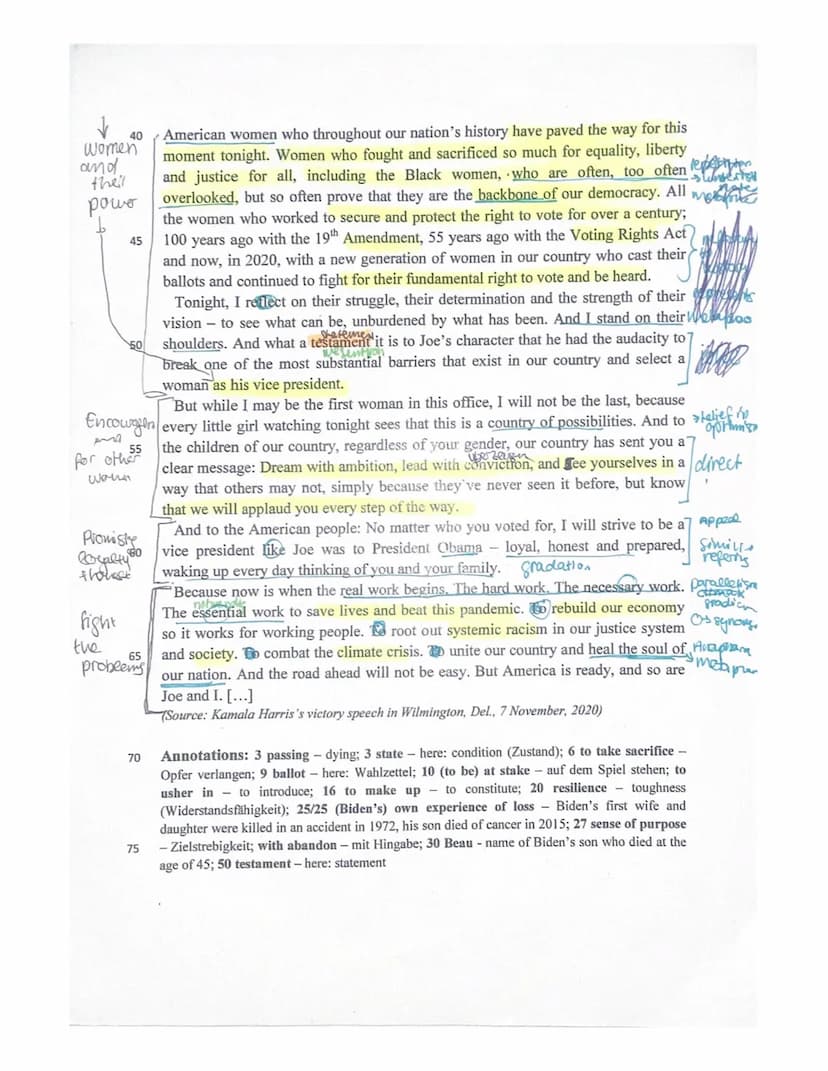 40 American women who throughout our nation's history have paved the way for this
women
and
their
power
moment tonight. Women who fought and sacrificed so much for equality, liberty
and justice for all, including the Black women, who are often, too often
overlooked, but so often prove that they are the backbone of our democracy. All
the women who worked to secure and protect the right to vote for over a century;
45 100 years ago with the 19th Amendment, 55 years ago with the Voting Rights Act
and now, in 2020, with a new generation of women in our country who cast their
ballots and continued to fight for their fundamental right to vote and be heard.
Tonight, I reflect on their struggle, their determination and the strength of their
vision – to see what can be, unburdened by what has been. And I stand on their
statement
50 shoulders. And what a testament it is to Joe's character that he had the audacity to
break one of the most substantial barriers that exist in our country and select a
woman as his vice president.
But while I may be the first woman in this office, I will not be the last, because
every little girl watching tonight sees that this is a country of possibilities. And to
for other
55 the children of our country, regardless of your gender, our country has sent you a
clear message: Dream with ambition, lead with conviction, and see yourselves in a
direct
way that others may not, simply because they've never seen it before, but know
that we will applaud you every step of the way.
And to the American people: No matter who you voted for, I will strive to be a
Appeal
60 vice president like Joe was to President Obama – loyal, honest and prepared,
waking up every day thinking of you and your family.
gradation
Because now is when the real work begins. The hard work. The necessary work.
The essential work to save lives and beat this pandemic. To rebuild our economy
fight
the
problems
so it works for working people. To root out systemic racism in our justice system
65 and society. To combat the climate crisis. To unite our country and heal the soul of
our nation. And the road ahead will not be easy. But America is ready, and so are
Joe and I. […]
(Source: Kamala Harris's victory speech in Wilmington, Del., 7 November, 2020)
70 Annotations: 3 passing – dying; 3 state – here: condition (Zustand); 6 to take sacrifice –
Opfer verlangen; 9 ballot – here: Wahlzettel; 10 (to be) at stake – auf dem Spiel stehen; to
usher in – to introduce; 16 to make up – to constitute; 20 resilience – toughness
(Widerstandsfähigkeit); 25/25 (Biden's) own experience of loss – Biden's first wife and
daughter were killed in an accident in 1972, his son died of cancer in 2015; 27 sense of purpose
75 – Zielstrebigkeit; with abandon – mit Hingabe; 30 Beau - name of Biden's son who died at the
age of 45; 50 testament – here: statement